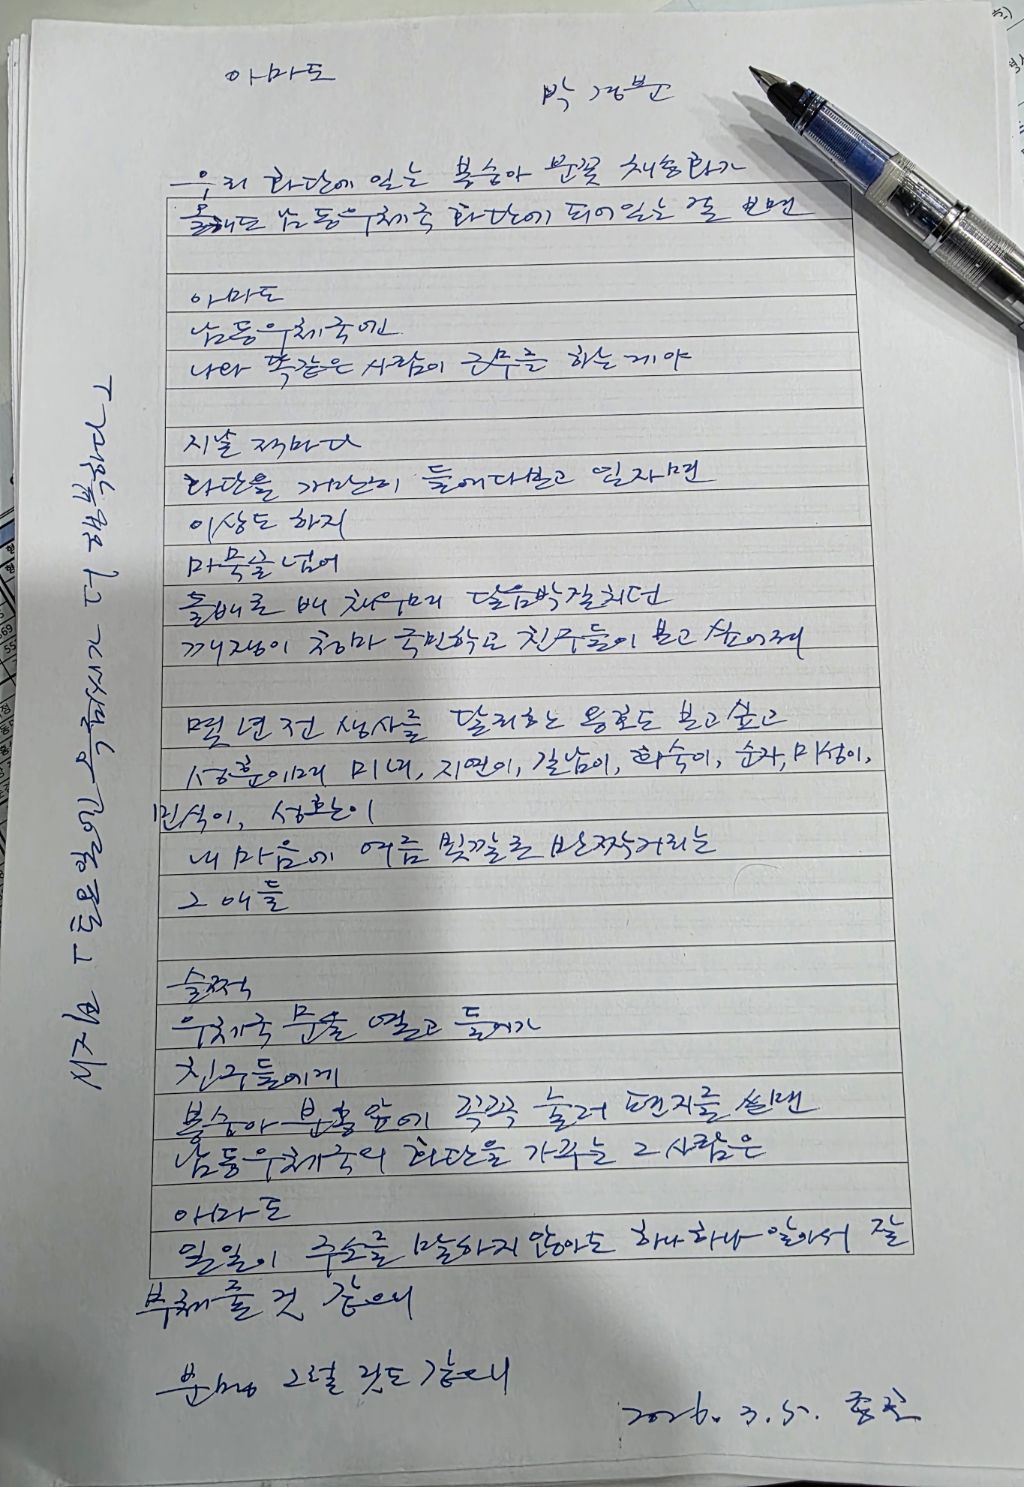 아마도
박경분
우리 화단에 있는 봉숭아 분꽃 채송화가
올해도 남동우체국 화단에 피어있는 걸 보면
아마도
남동우체국엔
나와 똑같은 사람이 근무를 하는 게야
지날 적마다
화단을 가만히 들여다보고 있자면
이상도 하지
마묵골 넘어
돌배로 배 채우며 달음박질치던
깨쟁이 청마 국민학교 친구들이 보고 싶어져
몇 년 전 생사를 달리하는 용호도 보고 싶고
성훈이며 미녀, 지연이, 길남이, 화숙이, 순자, 미성이,
민식이, 성환이
내 마음에 여름 빛깔로 반짝거리는
그 애들
슬쩍
우체국 문을 열고 들어가
친구들에게
봉숭아 분홍 앞에 꼭꼭 눌러 편지를 쓸땐
남동우체국의 화단을 가꾸는 그 사람은
아마도
일일이 주소를 말하지 않아도 하나하나 알아서 잘
부쳐줄 것 같으니
분명 그럴 것도 같으니
2026. 3. 5.
시집 「토요일인 목금씨가 더 행복하다」